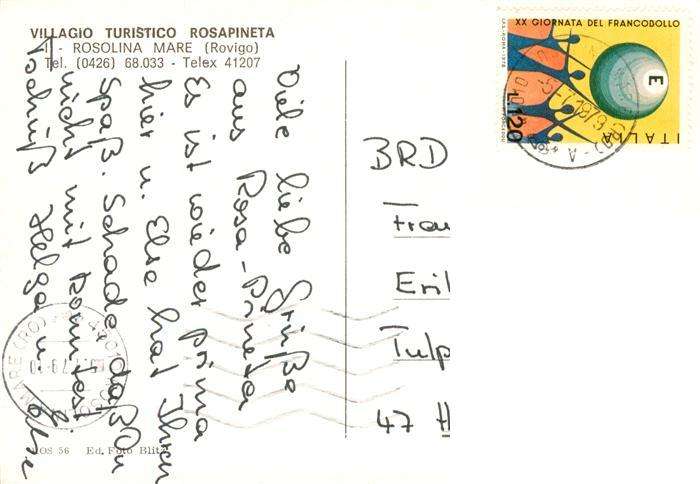 VILLAGIO TURISTICO ROSAPINETA
I - ROSOLINA MARE (Rovigo)
Tel. (0426) 68.033 - Telex 41207
Viele liebe Grüße
aus Rosa-Pineta
Es ist wieder prima
hier u. Else hat Ihren
Spaß. Schade daß Du
nicht mit kommst.
Tschüß Helga u. Else
BRD
Frau
Erik
Tulp
47 H
XX GIORNATA DEL FRANCOBOLLO
E
ITALIA
L.120
MARE (RO)
56 Ed. Foto Blitz